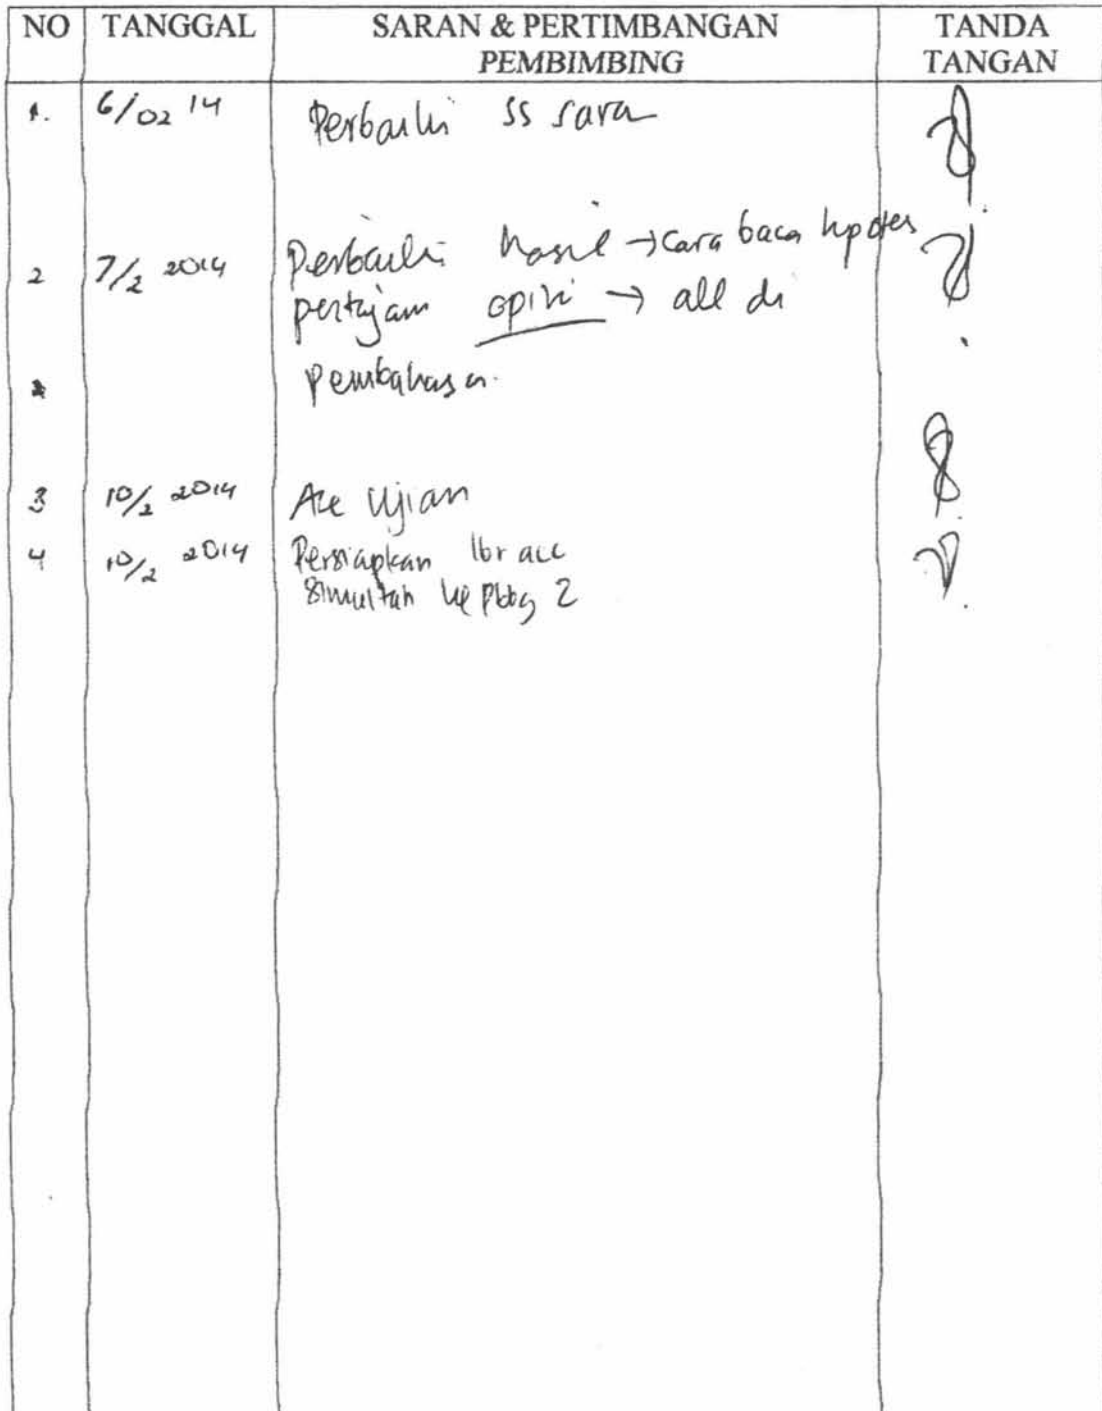 NO TANGGAL SARAN & PERTIMBANGAN TANDA
PEMBIMBING TANGAN
1. 6/02 14 Perbaiki ss sara
2 7/2 2014 Perbaiki hasil → cara baca hpotes
pertajam opini → all di
pembahasan.
3 10/2 2014 Acc Ujian
4 10/2 2014 Persiapkan lbr acc
simultan ke Pbbg 2